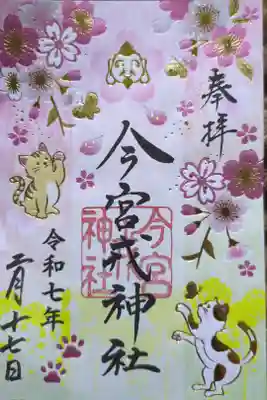 奉拝
今宮戎神社
今宮
神社
令和七年
二月十七日